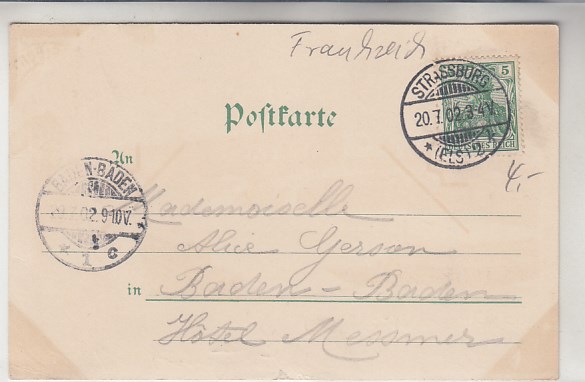 Frankreich
STRASSBURG
20.7.02.3-4N.
* (ELS) 2 k
5
REICH
Postkarte
4,-
An
BADEN-BADEN
.02.9-10V.
* 1 c
Mademoiselle
Alice Gerson
in Baden-Baden
Hôtel Messmer